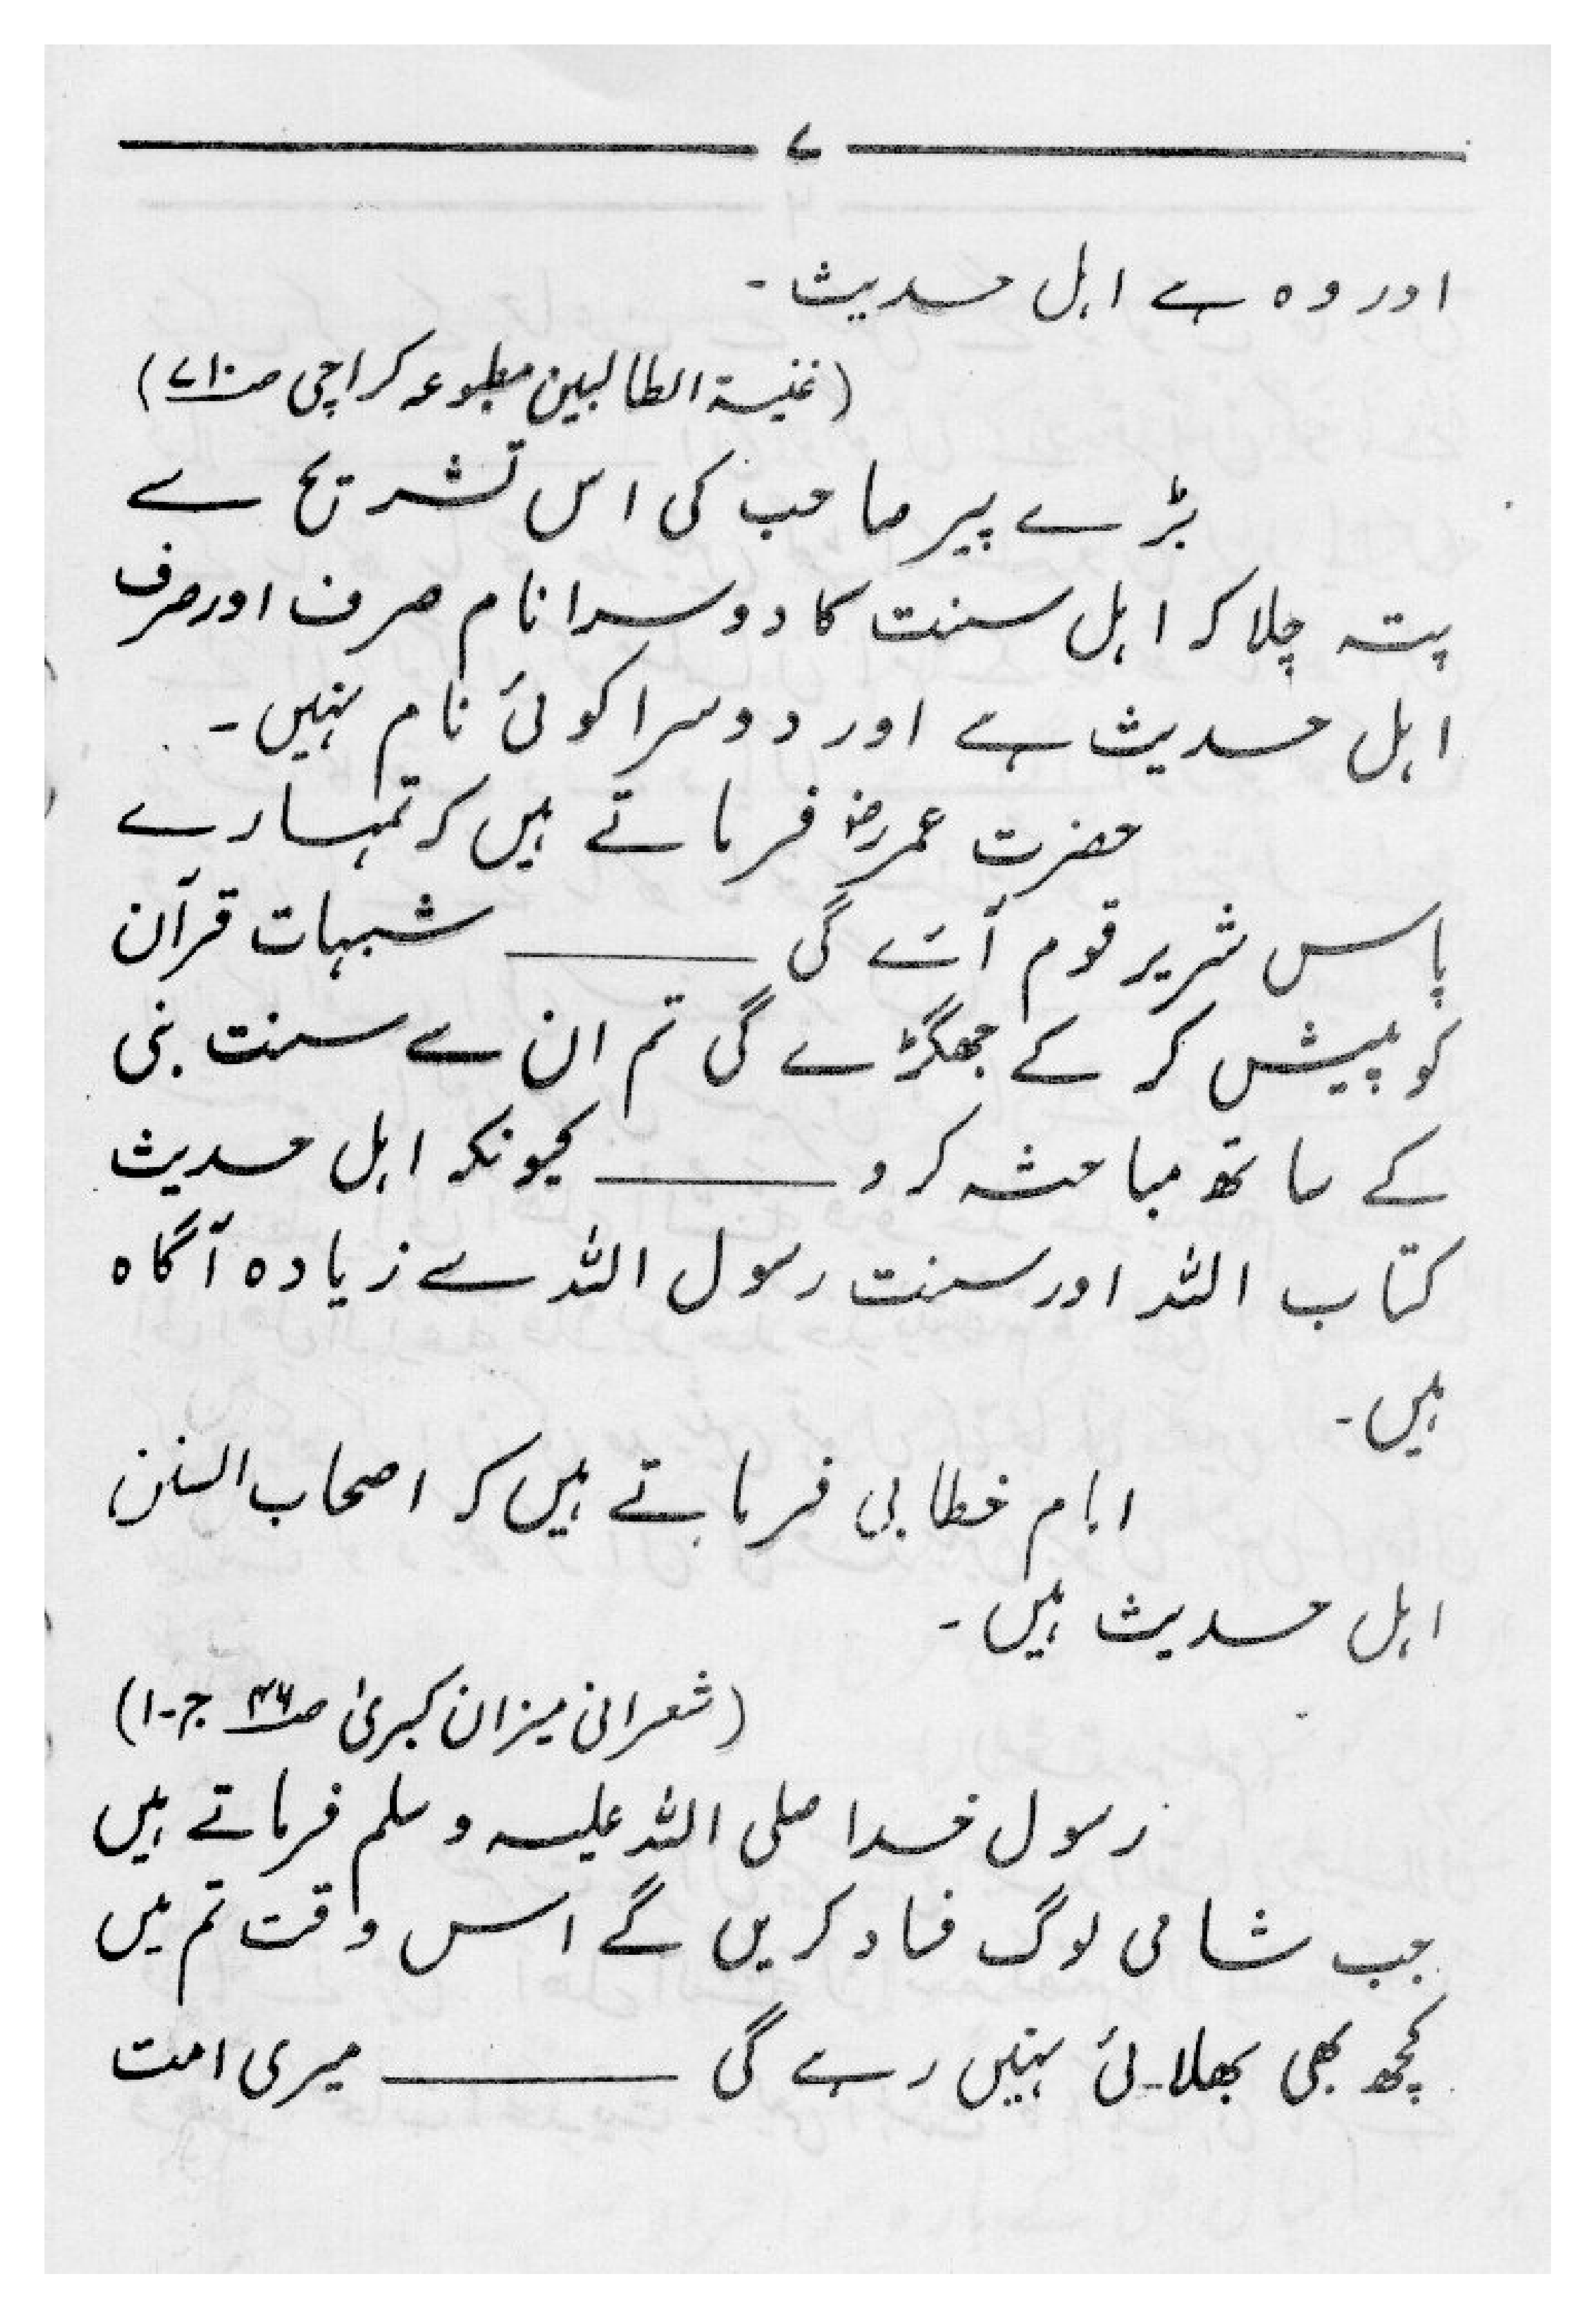 ۷
اور وہ ہے اہل حدیث۔
(غنیۃ الطالبین مطبوعہ کراچی صـ۷۱۰)
بڑے پیر صاحب کی اس تشریح سے
پتہ چلا کہ اہل سنت کا دوسرا نام صرف اور صرف
اہل حدیث ہے اور دوسرا کوئی نام نہیں۔
حضرت عمرؓ فرماتے ہیں کہ تمہارے
پاس شریر قوم آئے گی ـــــــــ شبہات قرآن
کو پیش کر کے جھگڑے گی تم ان سے سنت نبی
کے ساتھ مباحثہ کرو ـــــــــ کیونکہ اہل حدیث
کتاب اللہ اور سنت رسول اللہ سے زیادہ آگاہ
ہیں۔
امام خطابی فرماتے ہیں کہ اصحاب السنن،
اہل حدیث ہیں۔
(شعرانی میزان کبریٰ صـ۴۶ ج-۱)
رسول خدا صلی اللہ علیہ وسلم فرماتے ہیں
جب شامی لوگ فساد کریں گے اس وقت تم میں
کچھ بھی بھلائی نہیں رہے گی ـــــــــ میری امت